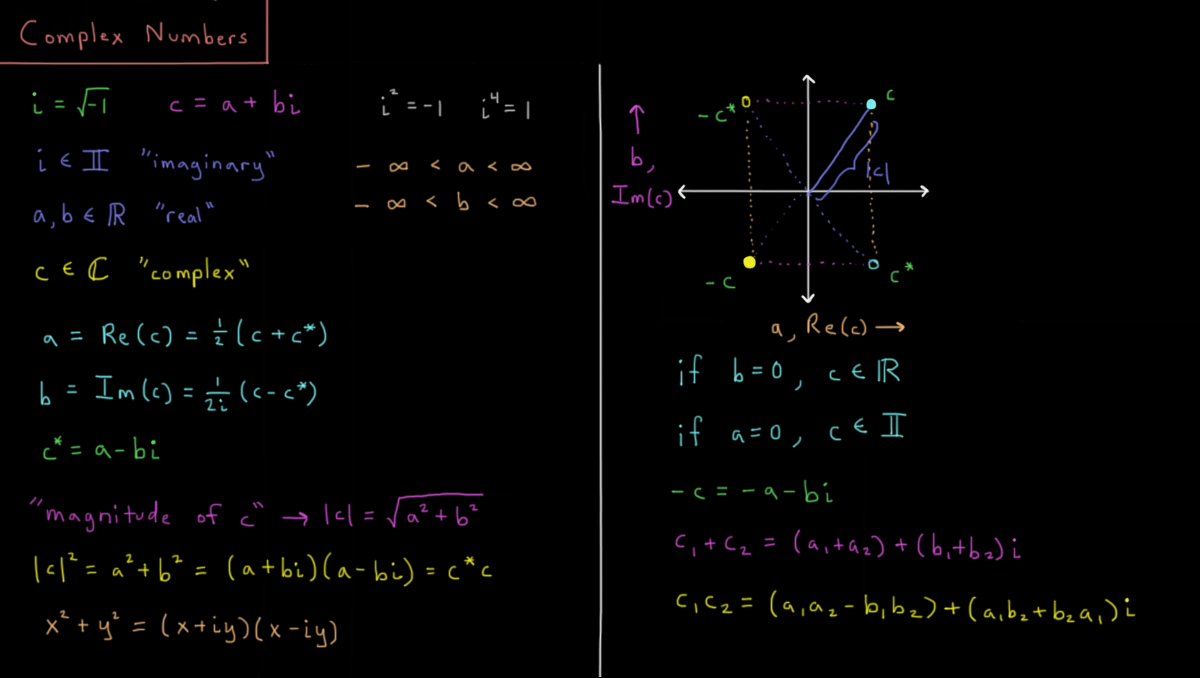 Complex Numbers
i = √-1   c = a + bi   i² = -1   i⁴ = 1
i ∈ 𝕀 "imaginary"   - ∞ < a < ∞
a, b ∈ ℝ "real"   - ∞ < b < ∞
c ∈ ℂ "complex"
a = Re(c) = 1/2 (c + c*)
b = Im(c) = 1/2i (c - c*)
c* = a - bi
"magnitude of c" → |c| = √a² + b²
|c|² = a² + b² = (a + bi)(a - bi) = c*c
x² + y² = (x + iy)(x - iy)
-c*   c
↑
b,
Im(c)
|c|
-c   c*
a, Re(c) →
if b = 0, c ∈ ℝ
if a = 0, c ∈ 𝕀
-c = -a - bi
c₁ + c₂ = (a₁ + a₂) + (b₁ + b₂)i
c₁c₂ = (a₁a₂ - b₁b₂) + (a₁b₂ + b₂a₁)i